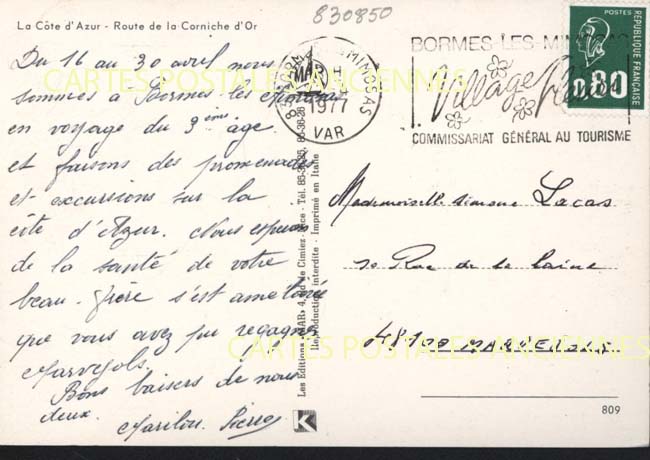 La Côte d'Azur - Route de la Corniche d'Or
830850
Du 16 au 30 avril nous
sommes à Bormes les Mimosas
en voyage du 3ème âge
et faisons des promenades
et excursions sur la
côte d'Azur. Nous espérons
de la santé de votre
beau-frère s'est améliorée
que vous avez pu regagner
Marvejols.
Bons baisers de nous
deux. Marilou. Pierre
BORMES-LES-MIMOSAS
1977
VAR
BORMES-LES-MIMOSAS
Village
COMMISSARIAT GÉNÉRAL AU TOURISME
POSTES
RÉPUBLIQUE FRANÇAISE
0,80
Mademoiselle Simone Lacas
Rue de
48100 MARVEJOLS
Les Éditions MAR, Cimiez Nice - Tél.
Reproduction interdite - Imprimé en Italie
K
809
CARTES POSTALES ANCIENNES
CARTES POSTALES ANCIENNES